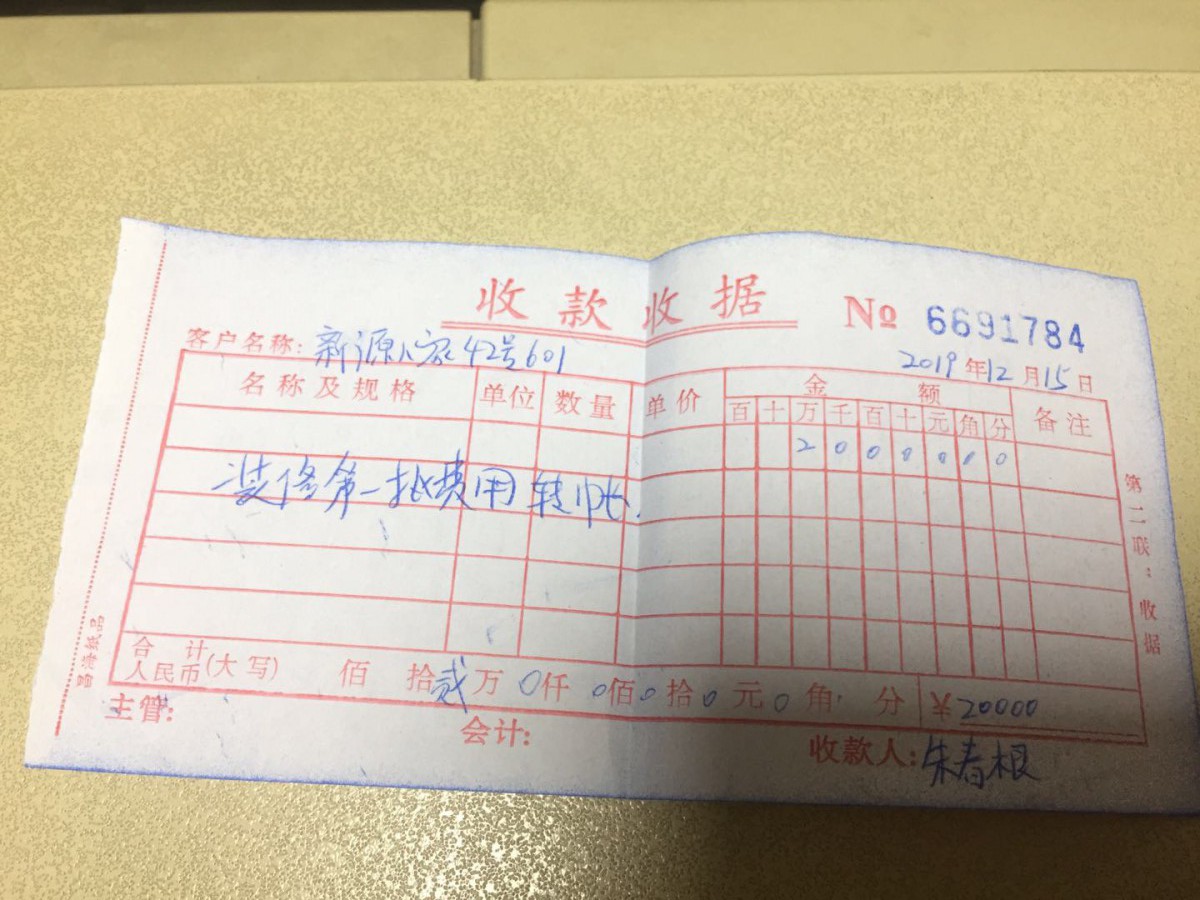 收款收据 № 6691784
客户名称: 新源人家42号601 2019年12月15日
名称及规格 单位 数量 单价 金额 备注
百 十 万 千 百 十 元 角 分
2 0 0 0 0 0 0
装修第一批费用 转帐
合计
人民币(大写) 佰 拾 贰 万 0 仟 0 佰 0 拾 0 元 0 角 分 ¥20000
主管: 会计: 收款人: 朱春根
第二联:收据
昌海纸品